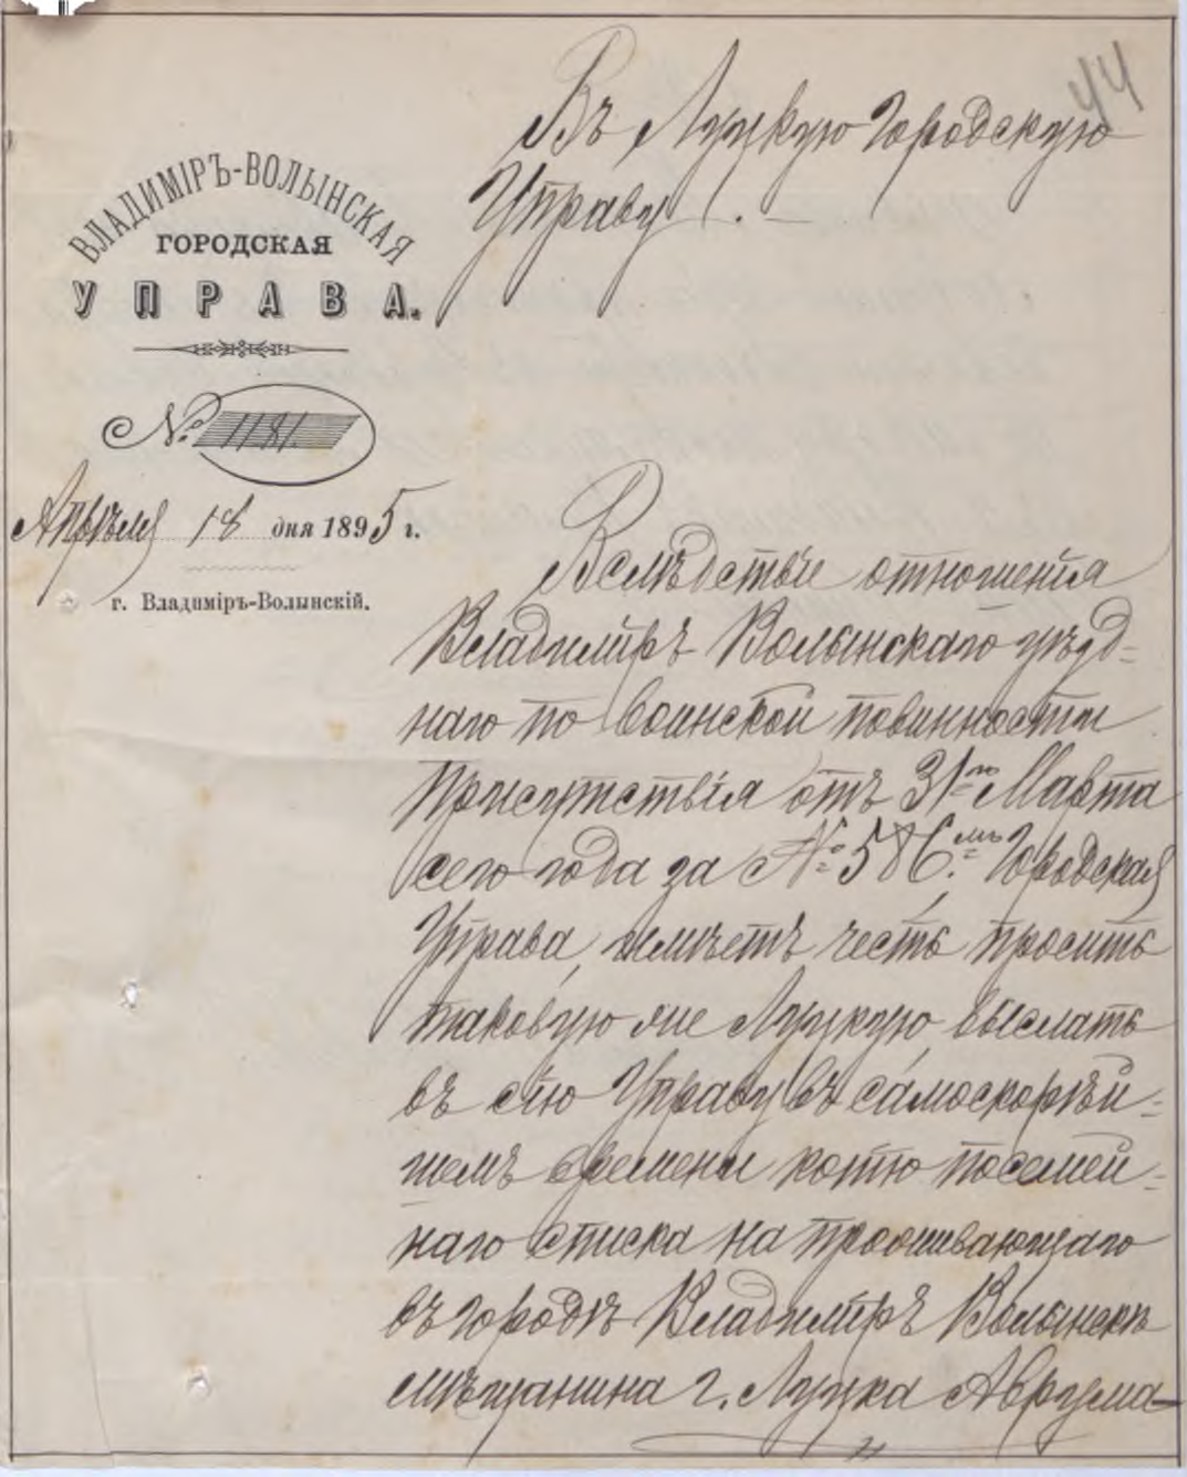 44
Въ Луцкую Городскую
Управу.
ВЛАДИМІРЪ-ВОЛЫНСКАЯ
ГОРОДСКАЯ
УПРАВА.
№ 1181.
Апрѣля 18 дня 1895 г.
г. Владиміръ-Волынскій.
Вслѣдствіе отношенія
Владиміръ Волынскаго уѣзд=
наго по воинской повинности
присутствія отъ 31го Марта
сего года за № 586.мъ Городская
Управа, имѣетъ честь просить
таковую же Луцкую, выслать
въ сію Управу въ самоскорѣй=
шемъ времени копію посемей=
наго списка на проживающаго
въ городѣ Владимірѣ Волынскѣ
мѣщанина г. Луцка Аврума-